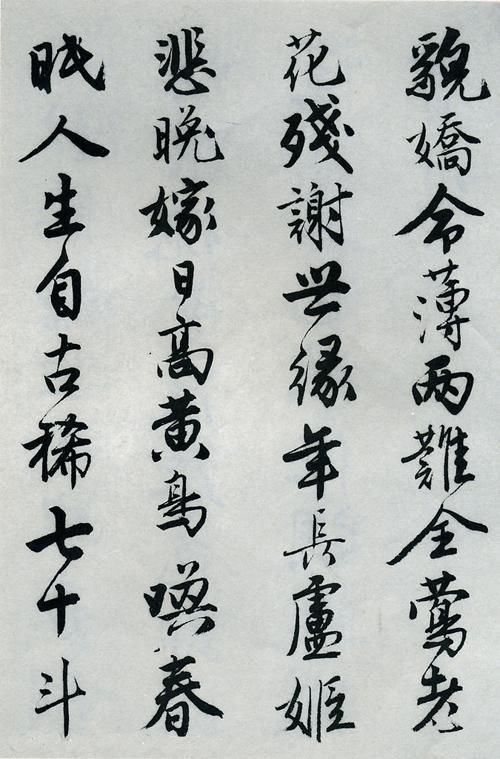 貌嬌命薄两難全鶯老
花殘謝世緣年長盧姬
悲晚嫁日高黄鳥喚春
眠人生自古稀七十斗